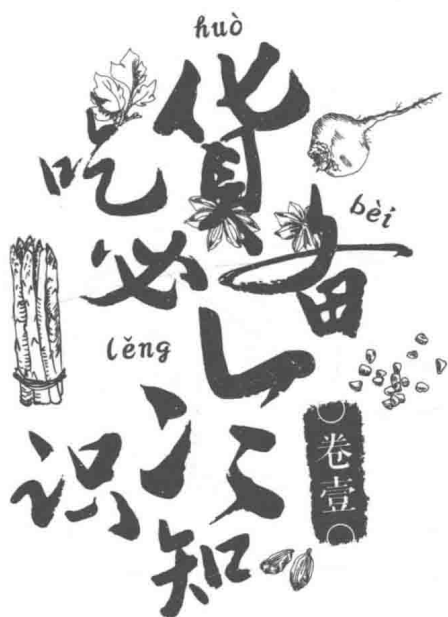 huò
吃貨
bèi
必备
lěng
冷
知识
卷壹